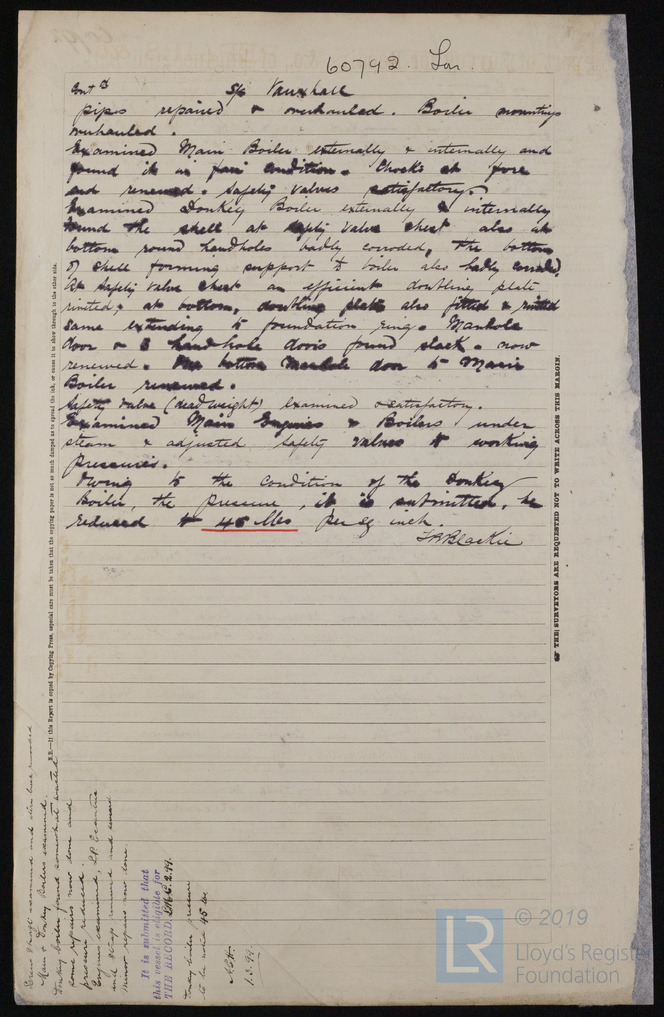 60792. Lon.
Cont'd S/s Vauxhall
pipes repaired & overhauled. Boiler mountings
overhauled.
Examined Main Boiler externally & internally and
found it in fair condition. Chocks at fore
end renewed. Safety valves satisfactory.
Examined Donkey Boiler externally & internally
found the shell at safety valve chest also at
bottom round handholes badly corroded, the bottom
of shell forming support to boiler also badly corroded.
At safety valve chest an efficient doubling plate
riveted, at bottom, doubling plate also fitted & riveted
same extending to foundation ring. Manhole
door & 3 handhole doors found slack. now
renewed. One bottom manhole door to Main
Boiler renewed.
Safety valve (dead weight) examined & satisfactory.
Examined Main Engines & Boilers under
steam & adjusted safety valves to working
pressures.
Owing to the condition of the Donkey
Boiler, the pressure, it is submitted, be
reduced to 45 lbs per sq inch.
J W Blackie
N.B.—If this Report is copied by Copying Press, especial care must be taken that the copying paper is not so much damped as to spread the ink, or cause it to show through to the other side.
THE SURVEYORS ARE REQUESTED NOT TO WRITE ACROSS THIS MARGIN.
Screw shaft examined and
Main & Donkey Boilers examined.
Donkey boiler found somewhat wasted
some repairs now done and
pressure reduced.
Engines examined, LP Eccentric
and strap renewed and several
minor repairs now done.
It is submitted that
this vessel is eligible for
THE RECORD. LMC. 2.99.
Donkey boiler pressure
to be noted 45 lbs
1.3.99.
© 2019
LR
Lloyd's Register
Foundation